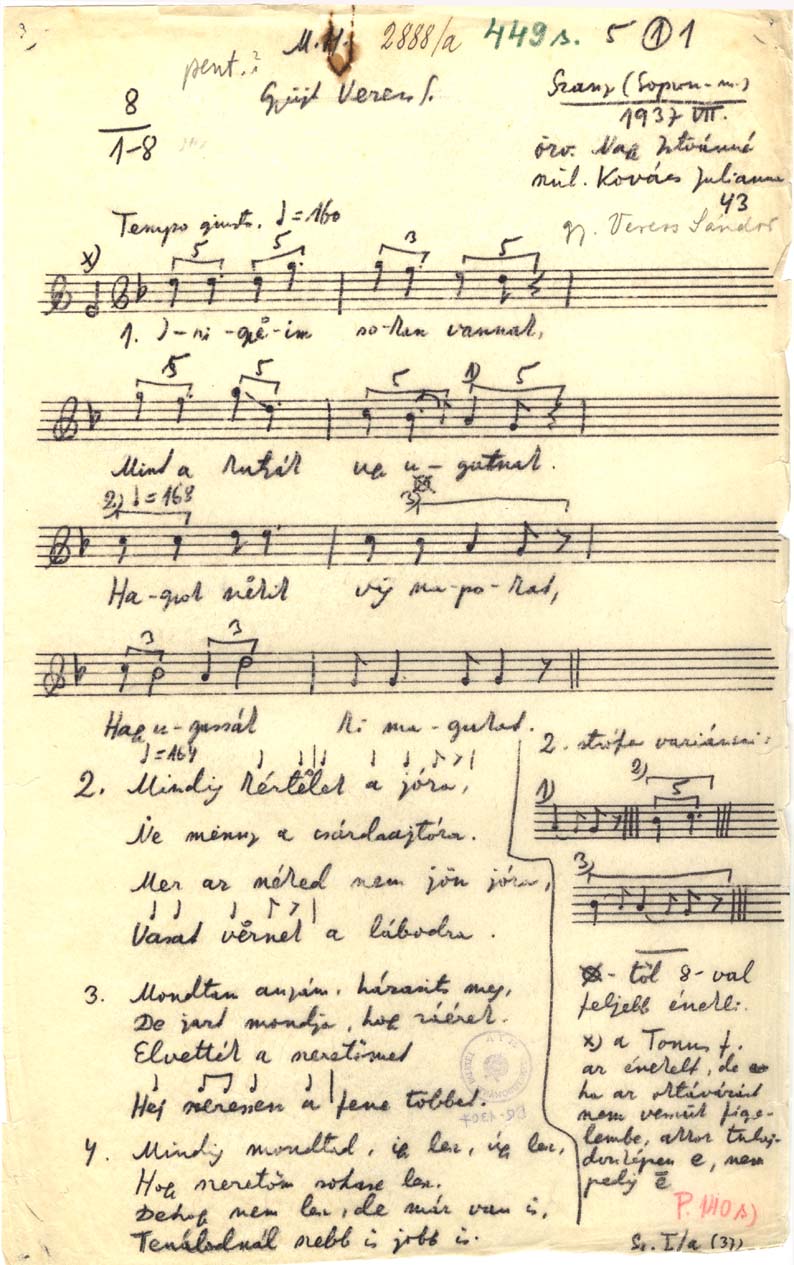 M.H. 2888/a 449s. 5 1 1
pent.?
Gyűjt Veress S.
8
1-8
Szany (Sopron-m.)
1937 VII.
özv. Nagy Istvánné
szül. Kovács Julianna
43
gy. Veress Sándor
Tempo giusto. ♩=160
x) 5 5 3 5
1. I-ri-győ-im so-kan vannak,
5 5 5 1) 5
Mind a kutyák úgy u-gatnak.
2) ♩=168 3)
Ha-gyok nékik víg na-po-kat,
3 3
Hagy u-gassák ki ma-gukat.
♩=164
2. Mindig kértelek a jóra,
Ne menny a csárdaajtóra.
Mer az néked nem jön jóra,
Vasat vernek a lábodra.
3. Mondtam anyám, házasits meg,
De jazt mondja, hogy ráérek.
Elvették a szeretőmet
Hej szeressen a fene többet.
4. Mindig mondtad, így lesz, úgy lesz,
Hogy szeretőm sohse lesz.
Dehogy nem lesz, de már van is,
Tenálodnál szebb is jobb is.
2. strófa variánsai:
1) 2) 5
3)
-től 8-val
feljebb énekli.
x) a Tonus f.
az énekelt, de
ha az oktávázást
nem vesszük figye-
lembe, akkor tulaj-
donképen e, nem
pedig e
P. 140 s)
Sz. I/a (37)